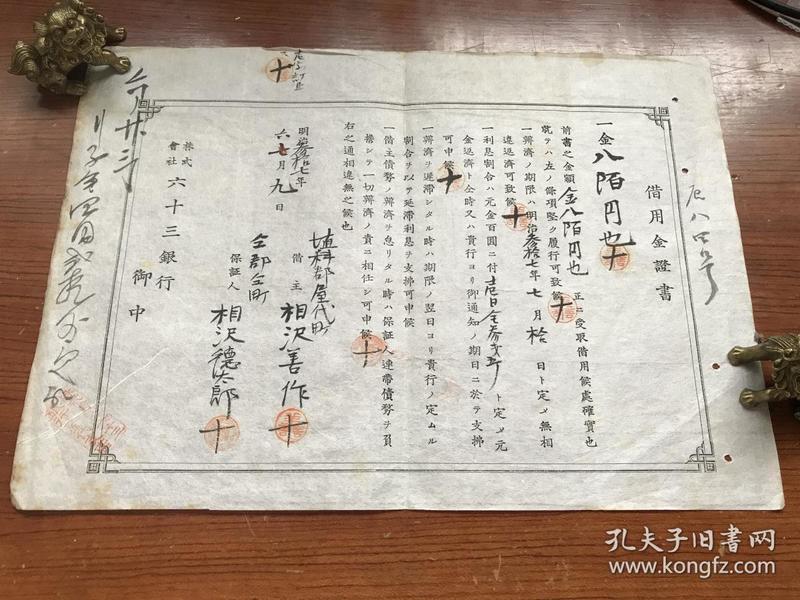 借用金證書
一金八陌円也
前書之金額金八陌円也正ニ受取借用候處確實也
就テハ左ノ條項堅ク履行可致候
一辨濟ノ期限ハ明治参拾七年七月拾日ト定メ無相
違返濟可致候
一利息割合ハ元金百圓ニ付壱日金参戔ト定メ元
金返濟ト仝時又ハ貴行ヨリ御通知ノ期日ニ於テ支拂
可申候
一辨濟ヲ遲滞シタル時ハ期限ノ翌日ヨリ貴行ノ定ムル
割合ヲ以テ延滞利息ヲ支拂可申候
一借主債務ノ辨濟ヲ怠リタル時ハ保証人連帶債務ヲ負
擔シテ一切辨濟ノ責ニ相任シ可申候
右之通相違無之候也
明治参拾七年
六七月九日
埴科郡屋代町
借主 相沢善作
仝郡仝町
保証人 相沢德太郎
株式會社六十三銀行
御中
孔夫子旧书网
www.kongfz.com